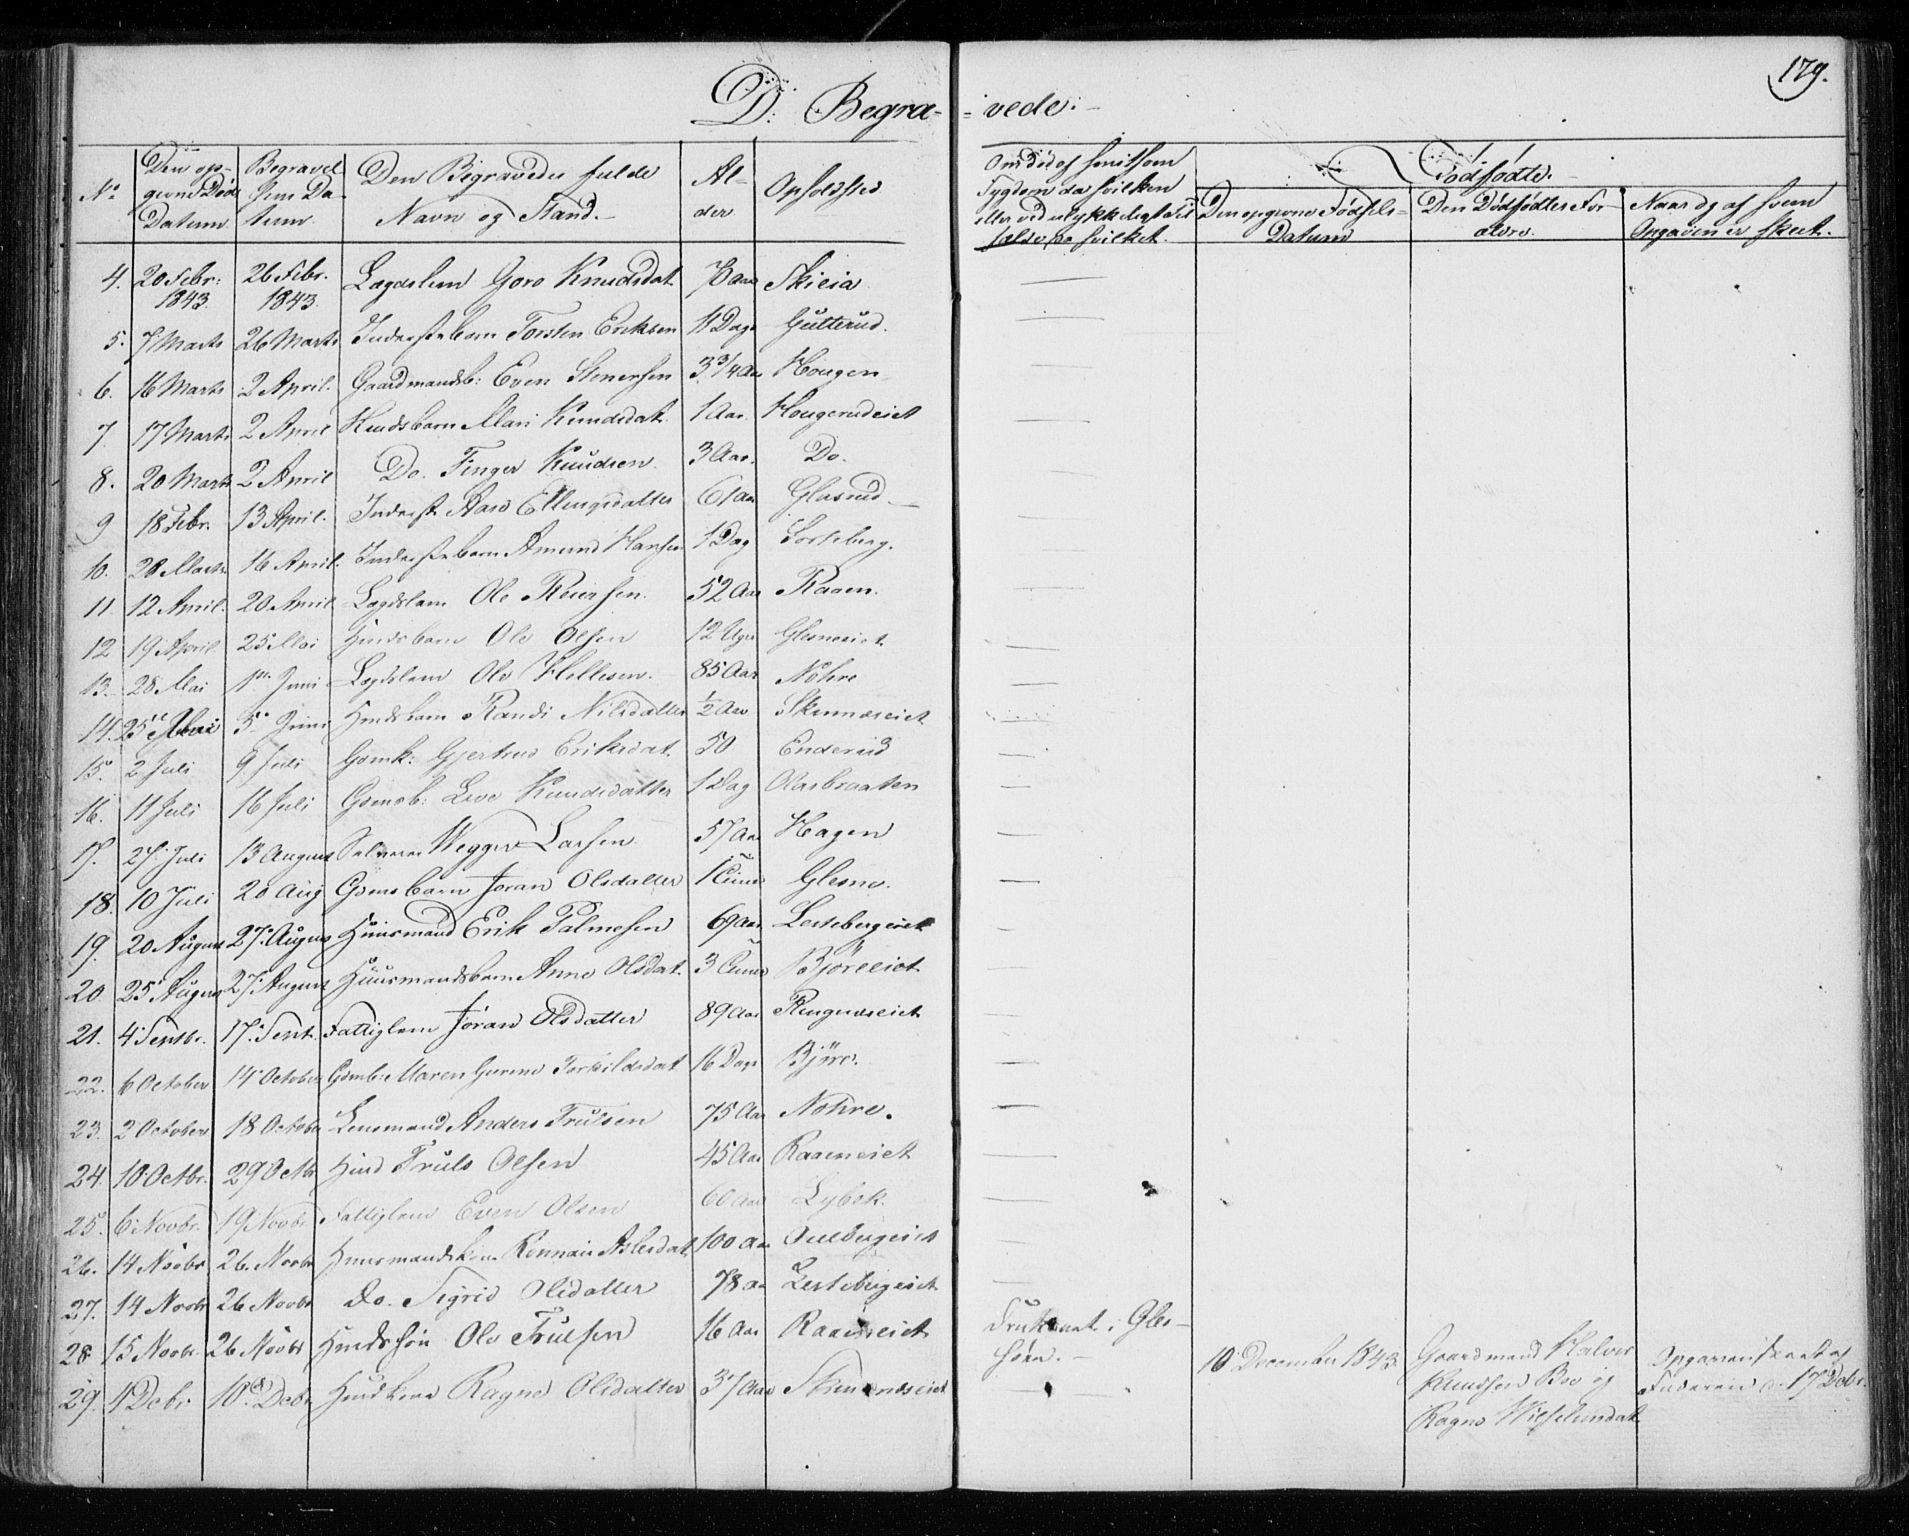 179.
D. Begra- =vede.
No
Den op-
givne Døds
Datum
Begravel
sens Da
tum.
Den Begravedes fulde
Navn og Stand.
Al-
der
Opholdsted
Om død af smitsom
Sygdom da hvilken
eller ved ulykkeligt Til
fælde, paa hvilket.
Dødfødte.
Den opgivne Fødsels-
Datum
Den Dødfødtes For-
ældre.
Naar og af hvem
Opgaven er skeet.
4. 20 Febr: 1843. 26 Febr. 1843. Lægdslem Goro Knudsdat. 78 Aar Skieia
5. 7 Marts 26 Marts Inderstebarn Torsten Eriksen 11 Dage Gulterud.
6. 16 Marts 2 April. Gaardmandsb: Even Stenersen 3 3/4 Aar Hougen
7 17 Marts 2 April Huudsbarn Mari Knudsdat. 1 Aar. Hougerudeiet
8. 20 Marts 2 April Do. Finger Knudsen. 3 Aar. Do.
9 18 Febr. 13 April. Inderst Aase Ellingsdatter 61 Aar Glasrud
10. 28 Marts 16 April. Inderstebarn Amund Hansen 1 Dag Sorteberg.
11. 12 April. 20 April Lægdslem Ole Reiersen. 52 Aar Raaen.
12 19 April 25 Mai Huusbarn Ole Olsen 12 Uger Glesneeiet
13. 28 Mai 1ste Juni Lægdslem Ole Hellesen. 85 Aar Nohre
14. 25 Mai 5 Juni Huudsbarn Randi Nilsdatter 1/2 Aar Skinneseiet
15. 2 Juli 9 Juli Gdmk: Gjertrud Eriksdat. 50 Enderud
16. 11 Juli 16 Juli Gdmsb: Live Knudsdatter 1 Dag Olasbraaten
17. 27 Juli 13 August Selveier Wegger Larsen. 57 Aar Hagen
18. 10 Juli 20 Aug Gdmsbarn Joran Olsdatter 1 Time Glesne.
19. 20 August 27 August Huusmand Erik Palmesen 69 Aar Lestebergeiet
20 25 August 27 August Huusmandsbarn Anne Olsdat. 3 Timer Björeeiet
21. 4 Septbr. 17 Sept. Fattiglem Jöran Olsdatter 89 Aar Ringneseiet
22. 6 October 14 October Gdmb: Maren Gurine Torkildsdat 16 Dage Björe.
23. 2 October 18 October Lensmand Anders Trulsen 75 Aar Nohre.
24. 10 Octbr. 29 Octbr Huusmd Truls Olsen 45 Aar Raaeneiet
25. 6 Novbr. 19 Novbr. Fattiglem Even Olsen 60 Aar Lybek.
26. 14 Novbr 26. Novbr Huusmandskone Rönnau Aslesdat. 100 Aar
27. 14 Novbr 26 Novbr Do. Sigrid Olsdatter 78 Aar Lestebergeiet
28. 15 Novbr. 26 Novbr Huudssön Ole Trulsen 16 Aar Raaeneiet Druknet i Gles-
søen.
29. 1 Decbr. 10. Decbr. Huudkone Ragne Olsdatter 37 Aar Skinneseiet
10 December 1843.
Gaardmand Halvor
Knudsen Boe og
Ragne
Opgaven skeet af
Faderen d: 17 Debr.